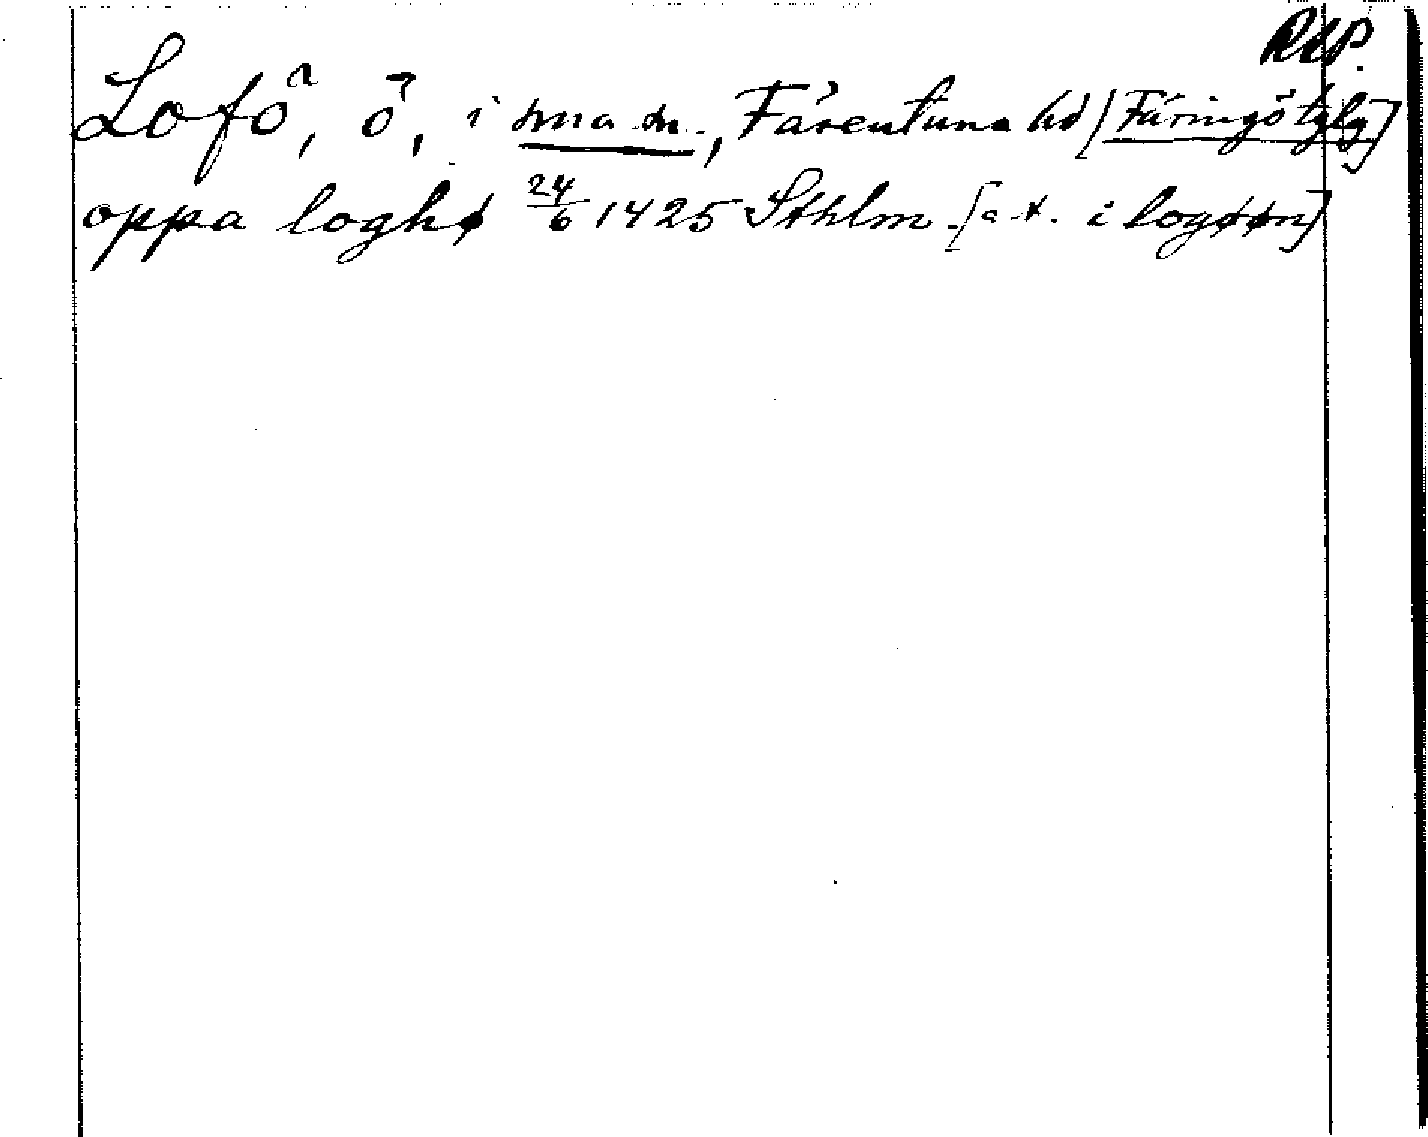 RAP.
Lofö, ö, i sma sn., Färentuna hd [Färingö tglg]
oppa loghø 24/6 1425 Sthlm. [a-t. i logøøn]